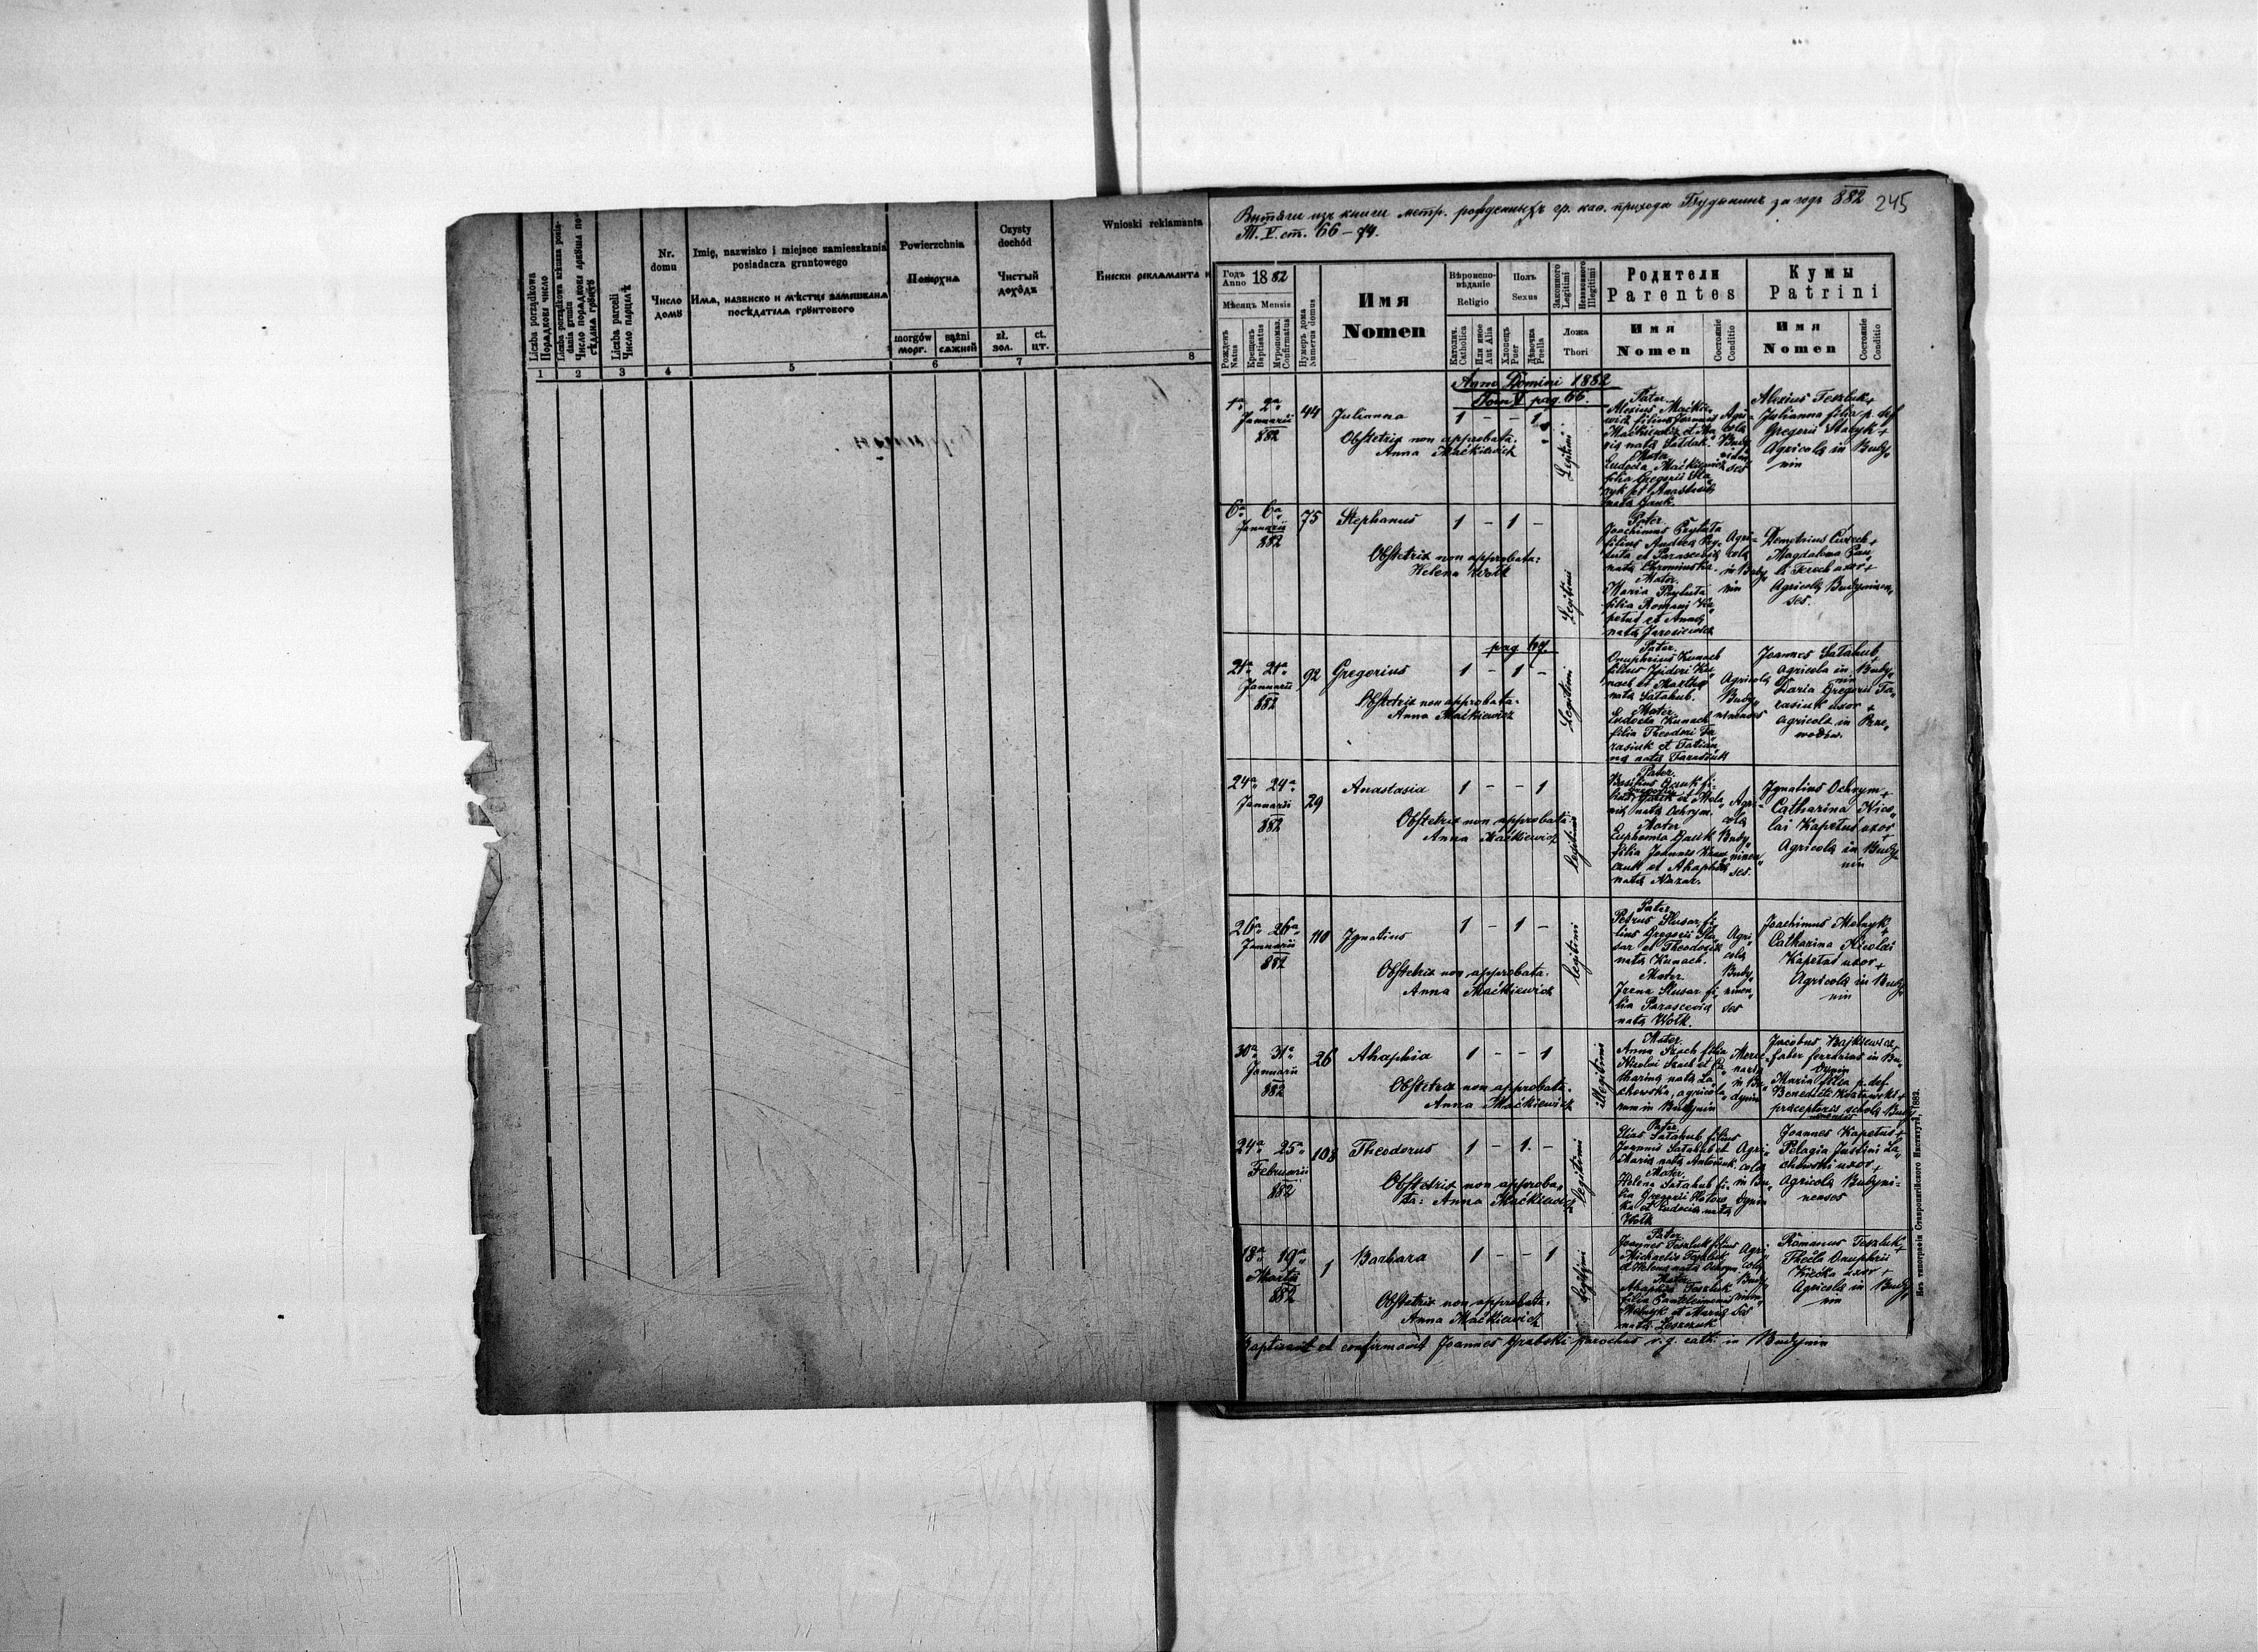 Liczba porządkowa
Порѧдкове число
Liczba porządkowa arkusza posia-
dania gruntu
Число порѧдкове аркѹша по-
сѣданѧ грѹнтѹ
Liczba parceli
Число парцелѣ
Nr.
domu
Число
домѹ
Imię, nazwisko i miejsce zamieszkania
posiadacza gruntowego
Имѧ, назвиско и мѣстце замешканѧ
посѣдателѧ грѹнтового
Powierzchnia
morgów
морг.
sążni
сѧжней
Czysty
dochód
Чистый
доходъ
zł.
зол.
ct.
цт.
Wnioski reklamanta
Внески рекламанта и
1 2 3 4 5 6 7 8
Вытяги изъ книги метр. рожденныхъ гр. кат. прихода Будынинъ за годъ 882 245
Т. V. ст. 66 – 74.
Годъ
Anno 1882
Мѣсяцъ Mensis
Рожденъ
Natus
Крещенъ
Baptisatus
Муропомаз.
Confirmatus
Нумеръ дома
Numerus domus
Имя
Nomen
Вѣроиспо-
вѣданіе
Religio
Католич.
Catholica
Или иное
Aut Alia
Полъ
Sexus
Хлопецъ
Puer
Дѣвочка
Puella
Законного
Legitimi
Незаконного
Illegitimi
Ложа
Thori
Родители
Parentes
Имя
Nomen
Состояніе
Conditio
Кумы
Patrini
Имя
Nomen
Состояніе
Conditio
Anno Domini 1882
Tom V pag. 66.
1a 2a
Januarii
882
44
Julianna
1 - - 1
Obstetrix non approbata:
Anna Maćkiewicz
Legitimi
Pater
Alexius Maćkie„
wicz filius Joannis
Maćkiewicz et Ma„
ria nata Sałdak.
Mater
Eudocia Maćkiewicz
filia Gregorii Sta„
ryk et Anastasia
nata Gruk.
Agri-
cola
Budy„
Alexius Teszluk +
Julianna filia p. def.
Gregorii Staryk +
Agricola in Budy„
nin
6a 6a
Januarii
882
75
Stephanus
1 - 1 -
Obstetrix non approbata:
Helena Wołk
Legitimi
Pater
Joachimus Pryłuta
filius Andrea Pry„
łuta et Parascevia
nata
Mater
Maria Pryłuta
filia Romani Ka„
petus et Anna
nata Jarosiewicz
Agri-
cola
in Budy„
nin
Demetrius +
Magdalena Pau„
li uxor +
Agricola Budyninen„
ses.
pag 67.
21a 21a
Januarii
882
92
Gregorius
1 - 1 -
Obstetrix non approbata:
Anna Maćkiewicz
Legitimi
Pater
Onuphrius Kunach
filius Isidori Ku„
nach et Martha
nata Sałahub.
Mater
Eudocia Kunach
filia Theodori Ta„
rasiuk et Tatian„
na nata
Agricola
Budy„
ninenses
Joannes Sałahub
agricola in Budy„
nin
Daria Gregorii Ta„
rasiuk uxor +
agricola in Prze„
wodów.
24a 24a
Januarii
882
29
Anastasia
1 - - 1
Obstetrix non approbata:
Anna Maćkiewicz
legitimi
Pater
Basilius
nata Ochrym.
Mater
Euphemia
filia Joannis
et Ahaphia
nata Nazar.
Agri-
cola
Budy„
ninen„
ses.
Ignatius Ochrym +
Catharina Nico„
lai Kapetus uxor
Agricola in Budy„
nin
26a 26a
Januarii
882
110
Ignatius
1 - 1 -
Obstetrix non approbata:
Anna Maćkiewicz
legitimi
Pater
Petrus Slusar fi„
lius Gregorii Slu„
sar et Theodosia
nata Kunach.
Mater
Irena Slusar fi„
lia Parascevia
nata Wołk.
Agri„
cola
Budy„
ninen„
ses
Joachimus Melnyk +
Catharina Nicolai
Kapetus uxor +
Agricola in Budy„
nin
30a 31a
Januarii
882
26
Ahaphia
1 - - 1
Obstetrix non approbata:
Anna Maćkiewicz
illegitimi
Mater
Anna Szach filia
Nicolai Szach et Ca„
tharina nata La„
chowska, agricola„
rum in Budynin
in Bu„
dynin
Jacobus Bajkiewicz,
faber ferrarius in Bu„
dynin
Maria filia p. def.
Benedicti
praeceptoris schola Budy„
ninensis
24a 25a
Februarii
882
108
Theodorus
1 - 1 -
Obstetrix non approba„
ta: Anna Maćkiewicz
legitimi
Pater
Elias Sałahub filius
Joannis Sałahub et
Maria nata
Mater
Helena Sałahub fi„
lia Gregorii
et Eudocia nata
Wołk
Agri„
cola
in Bu„
dynin
Joannes Kapetus +
Pelagia Justini La„
chowski uxor +
Agricola Budyni-
nenses
18a 19a
Martii
882
1
Barbara
1 - - 1
Obstetrix non approbata:
Anna Maćkiewicz
legitimi
Pater
Joannes Teszluk filius
Michaelis Teszluk
et Helena nata Ochrym.
Mater
Ahaphia Teszluk
filia Panteleimonis
Melnyk et Maria
nata Leszczuk
Agri„
cola
Budy„
ninen„
ses
Romanus Teszluk +
Thecla Onuphrii
uxor +
Agricola in Budy„
nin
Baptisavit et confirmavit Joannes Grabski parochus r. g. cath. in Budynin
Изъ типографіи Ставропигійского Института, 1883.